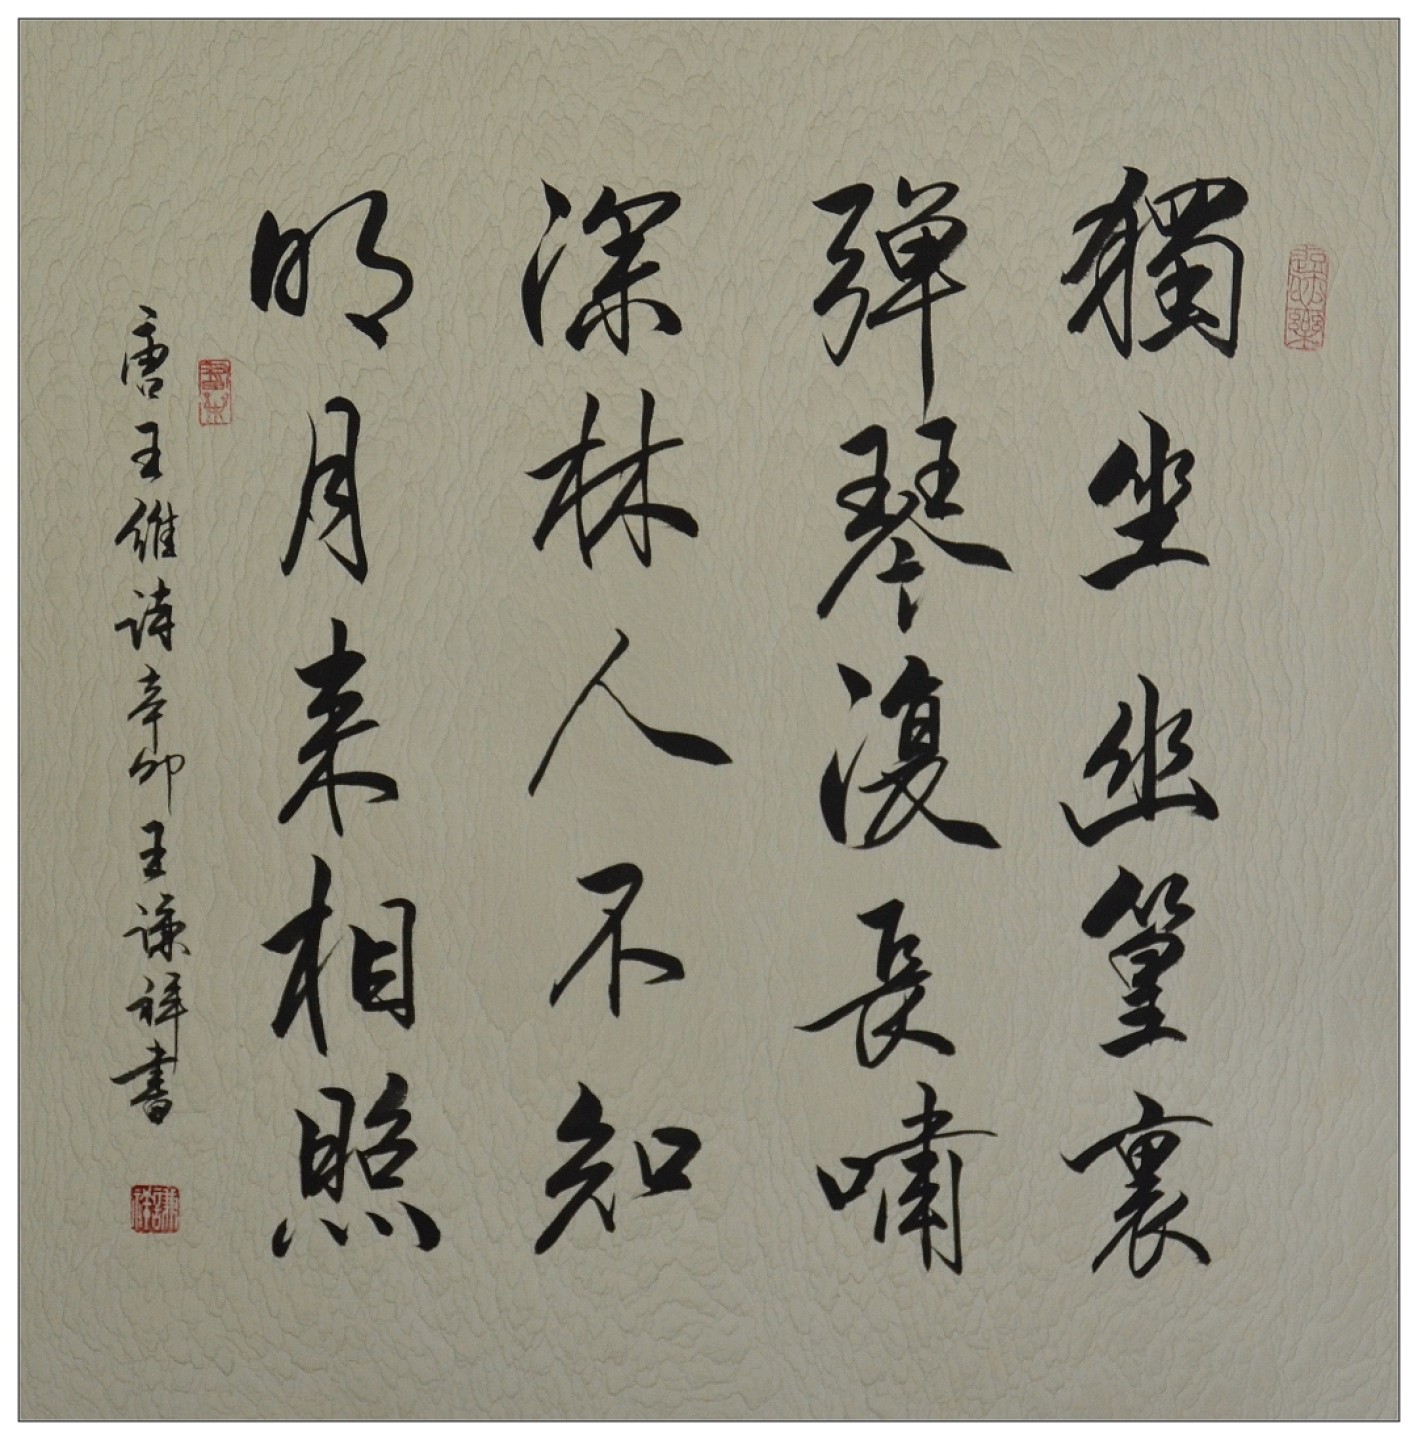 獨坐幽篁裏
弹琴復長嘯
深林人不知
明月来相照
唐王维诗辛卯王谦祥書